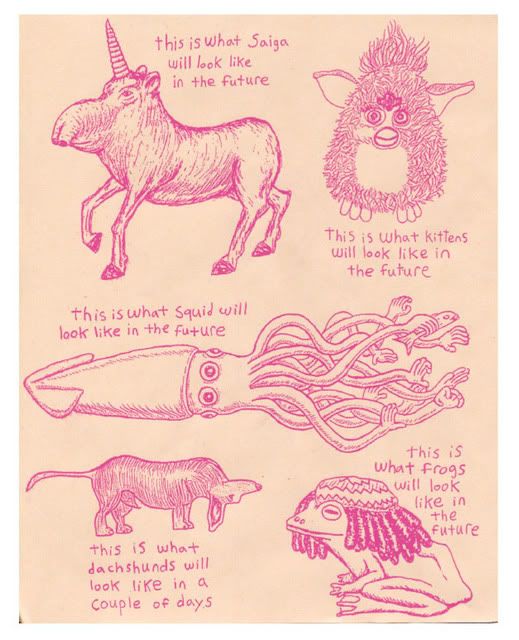 this is what Saiga
will look like
in the future
This is what kittens
will look like in
the future
this is what squid will
look like in the future
this is
what frogs
will look
like in
the
future
this is what
dachshunds will
look like in a
couple of days